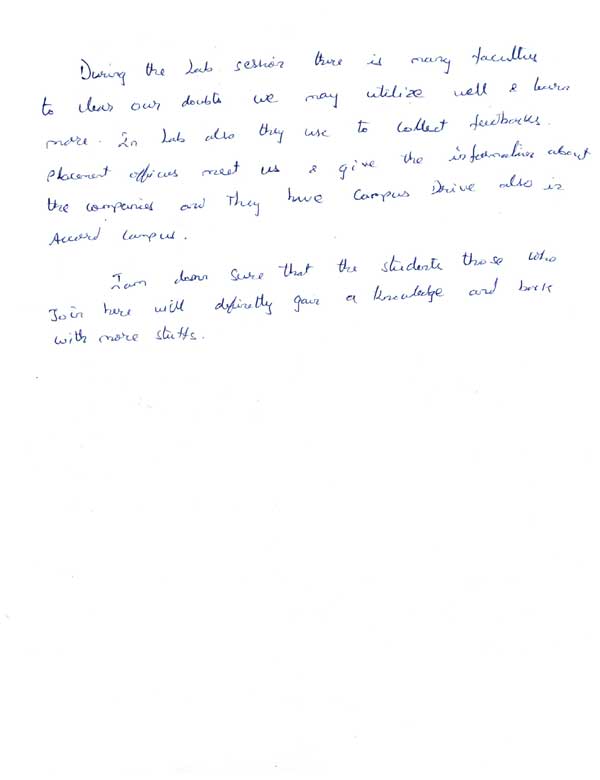 During the Lab session there is many faculties
to clear our doubts we may utilize well & learn
more. In Lab also they use to collect feedbacks.
Placement officers meet us & give the information about
the companies and They have Campus Drive also in
Accord Campus.
I am damn sure that the students those who
Join here will definetly gain a knowledge and back
with more stuffs.